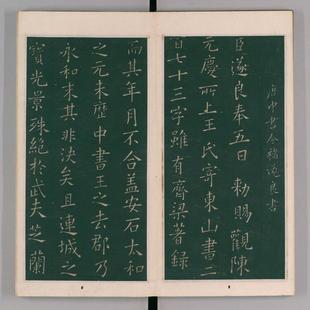 唐中書令褚遂良書
臣遂良奉五日勅賜觀陳
元慶所上王氏寄東山書二
百七十三字雖有齊梁著録
而其年月不合蓋安石太和
之元未歷中書王之去郡乃
永和末其非決矣且連城之
寶光景殊絕於武夫芝蘭